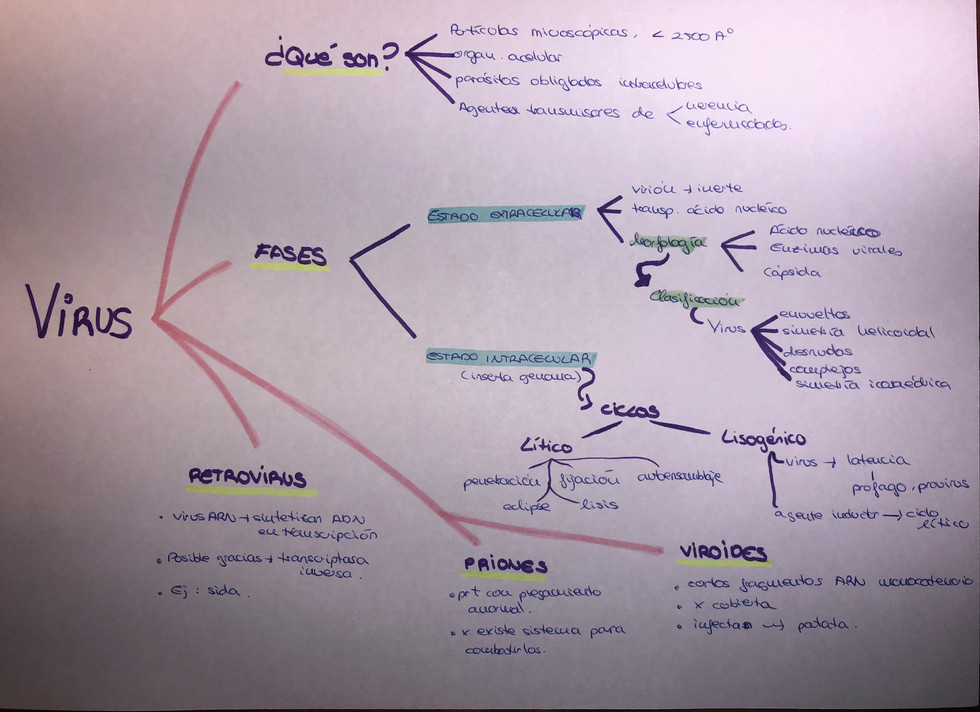 ¿Qué son?
Partículas microscópicas, < 2300 Aº
organ. acelular
parásitos obligados intracelulares
Agentes transmisores de
herencia
enfermedades.
Virus
FASES
ESTADO EXTRACELULAR
virión → inerte
transp. ácido nucleico
Morfología
Ácido nucleico
Enzimas virales
Cápsida
Clasificación
Virus
envueltos
simetría helicoidal
desnudos
complejos
simetría icosaédrica
ESTADO INTRACELULAR
(inserta genoma)
CICLOS
Lítico
penetración
fijación
autoensamblaje
eclipse
lisis
Lisogénico
virus → latencia
prófago, provirus
agente inductor → ciclo
lítico
RETROVIRUS
• virus ARN → sintetizan ADN
en transcripción
• Posible gracias → transcriptasa
inversa.
• Ej: sida.
PRIONES
• prt con plegamiento
anormal.
• x existe sistema para
combatirlas.
VIROIDES
• cortos fragmentos ARN monocatenario
• x cubierta
• infectan → patata.